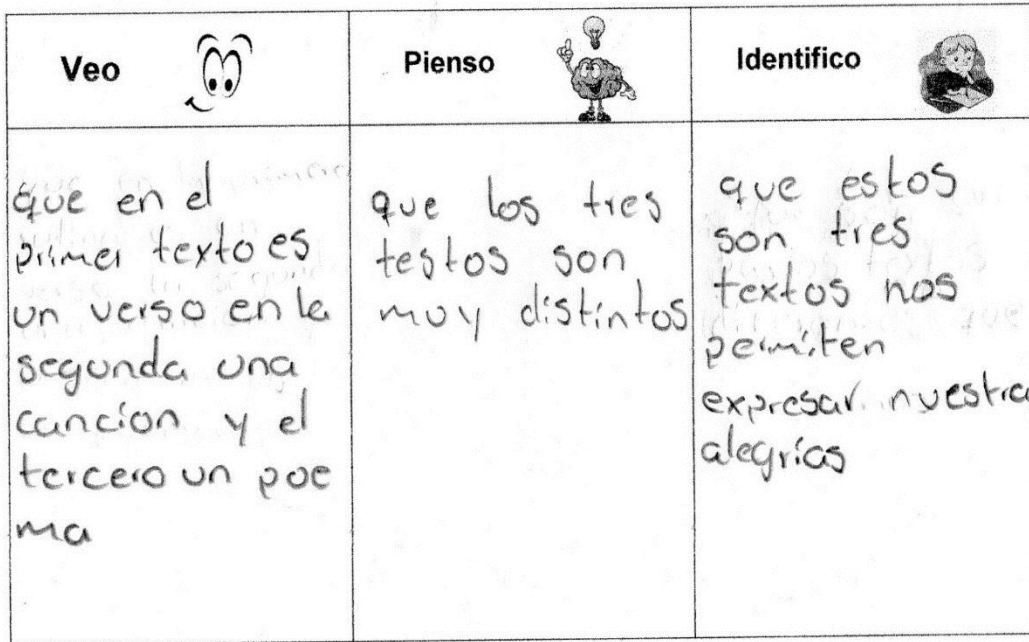 Veo
Pienso
Identifico
que en el
primer texto es
un verso en la
segunda una
cancion y el
tercero un poe
ma
que los tres
testos son
muy distintos
que estos
son tres
textos nos
permiten
expresar nuestra
alegrías